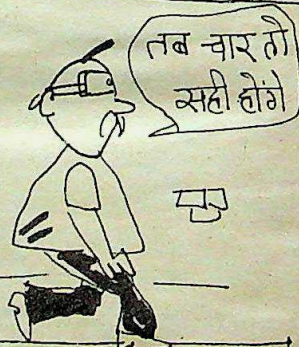 तब चार तो
सही होंगे